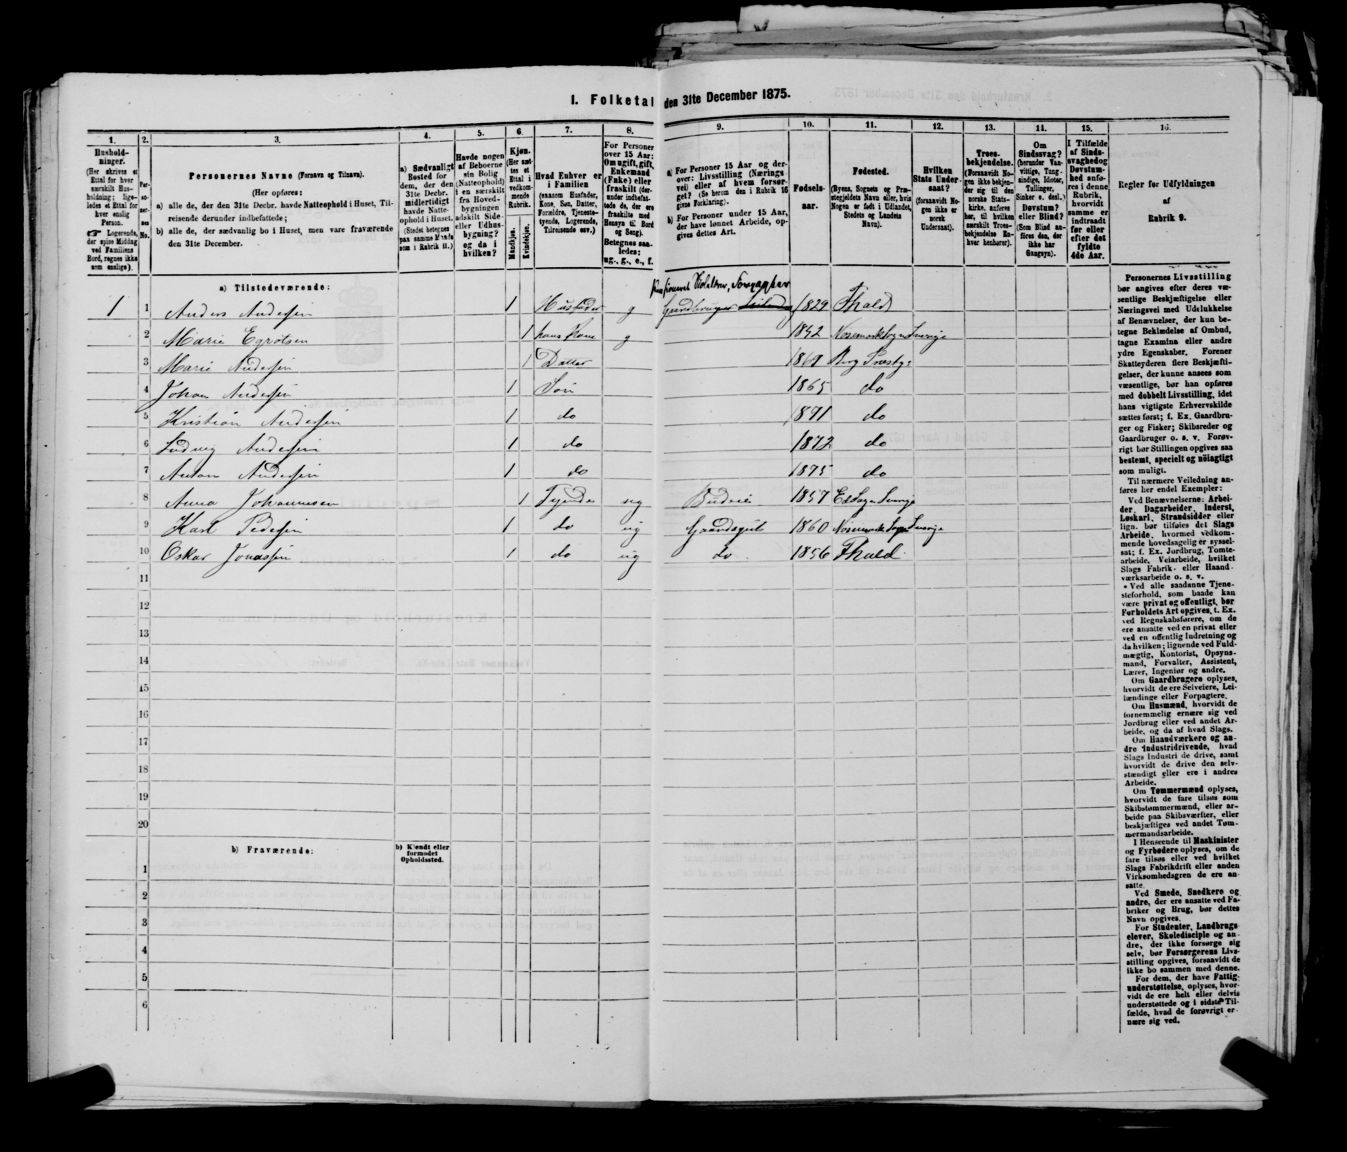 I. Folketal den 31te December 1875.
1.
Husholdninger.
(Her skrives et Ettal for hver særskilt Husholdning; ligeledes et Ettal for hver enslig Person.
☞ Logerende, der spise Middag ved Familiens Bord, regnes ikke som enslige).
2.
Personernes No.
3.
Personernes Navne (Fornavn og Tilnavn).
(Her opføres:
a) alle de, der den 31te Decbr. havde Natteophold i Huset, Tilreisende derunder indbefattede;
b) alle de, der sædvanlig bo i Huset, men vare fraværende den 31te December.
4.
a) Sædvanligt Bosted for dem, der den 31te Decbr. midlertidigt havde Natteophold i Huset.
(Stedet betegnes paa samme Maade som i Rubrik 11.)
5.
Havde nogen af Beboerne sin Bolig (Natteophold) i en særskilt fra Hovedbygningen adskilt Side- eller Udhusbygning? og da i hvilken?
6.
Kjøn.
(Her sættes et Ettal i vedkommende Rubrik.
Mandkjøn.
Kvindekjøn.
7.
Hvad Enhver er i Familien
(saasom Husfader, Kone, Søn, Datter, Forældre, Tjenestetyende, Logerende, Tilreisende osv.)
8.
For Personer over 15 Aar: Om ugift, gift, Enkemand (Enke) eller fraskilt (derunder indbefattede de, der ere fraskilte med Hensyn til Bord og Seng).
Betegnes saaledes: ug., g., e., f.
9.
a) For Personer 15 Aar og derover: Livsstilling (Næringsvei) eller af hvem forsørget? (Se herom den i Rubrik 16 givne Forklaring).
b) For Personer under 15 Aar, der have lønnet Arbeide, opgives dettes Art.
10.
Fødselsaar.
11.
Fødested.
(Byens, Sognets og Præstegjeldets Navn eller, hvis Nogen er født i Udlandet, Stedets og Landets Navn).
12.
Hvilken Stats Undersaat?
(forsaavidt Nogen ikke er norsk Undersaat).
13.
Troesbekjendelse.
(Forsaavidt Nogen ikke bekjender sig til den norske Statskirke, anføres her, til hvilken særskilt Troesbekjendelse Enhver henhører).
14.
Om Sindssvag?
(herunder Vanvittige, Tungsindige, Idioter, Tullinger, Sinker o. desl.)
Døvstum? eller Blind?
(Som Blind anføres den, der ikke har Gangsyn).
15.
I Tilfælde af Sindssvaghed og Døvstumhed anføres i denne Rubrik, hvorvidt samme er indtraadt før eller efter det fyldte 4de Aar.
16.
Regler for Udfyldningen af Rubrik 9.
a) Tilstedeværende:
1 1 Anders Andersen 1 Husfader g Gaardbruger 1829 Fhald
2 Marie 1 hans Kone g
3 Marie Andersen 1 Datter
4 Johan Andersen 1 Søn 1865 do
5 Kristian Andersen 1 do 1871 do
6 Ludvig Andersen 1 do 1872 do
7 Anton Andersen 1 do 1875 do
8 Anna Johannesen 1 Tjende ug Budeie 1857
9 Karl 1 do ug 1860
10 Oskar Jonassen 1 do ug do 1856 Fhald
11
12
13
14
15
16
17
18
19
20
b) Fraværende:
b) Kjendt eller formodet Opholdssted.
1
2
3
4
5
6
Personernes Livsstilling
bør angives efter deres væ-
sentlige Beskjæftigelse eller
Næringsvei med Udelukkelse
af Benævnelser, der kun be-
tegne Beklædelse af Ombud,
tagne Examina eller andre
ydre Egenskaber. Forener
Skatteyderen flere Beskjæfti-
gelser, der kunne ansees som
væsentlige, bør han opføres
med dobbelt Livsstilling, idet
hans vigtigste Erhvervskilde
sættes først; f. Ex. Gaardbru-
ger og Fisker; Skibsreder og
Gaardbruger o. s. v. Forøv-
rigt bør Stillingen opgives saa
bestemt, specielt og nöiagtigt
som muligt.
Til nærmere Veiledning an-
føres her endel Exempler:
Ved Benævnelserne: Arbei-
der, Dagarbeider, Inderst,
Løskarl, Strandsidder eller
lign. bør tilføies det Slags
Arbeide, hvormed vedkom-
mende hovedsagelig er syssel-
sat; f. Ex. Jordbrug, Tomte-
arbeide, Veiarbeide, hvilket
Slags Fabrik- eller Haand-
værksarbeide o. s. v.
Ved alle saadanne Tjene-
steforhold, som baade kan
være privat og offentligt, bør
Forholdets Art opgives, f. Ex.
ved Regnskabsførere, om de
ere ansatte ved en privat eller
ved en offentlig Indretning og
da hvilken; lignende ved Fuld-
mægtig, Kontorist, Opsyns-
mand, Forvalter, Assistent,
Lærer, Ingeniør og andre.
Om Gaardbrugere oplyses,
hvorvidt de ere Selveiere, Lei-
lændinge eller Forpagtere.
Om Husmænd, hvorvidt de
fornemmelig ernære sig ved
Jordbrug eller ved andet Ar-
beide, og da af hvad Slags.
Om Haandværkere og an-
dre industridrivende, hvad
Slags Industri de drive, samt
hvorvidt de drive den selv-
stændigt eller ere i andres
Arbeide.
Om Tømmermænd oplyses,
hvorvidt de fare tilsøs som
Skibstømmermænd, eller ar-
beide paa Skibsværfter, eller
beskjæftiges ved andet Tøm-
mermandsarbeide.
I Henseende til Maskinister
og Fyrbødere oplyses, om de
fare tilsøs eller ved hvilket
Slags Fabrikdrift eller anden
Virksomhedsgren de ere an-
satte.
Ved Smede, Snedkere og
andre, der ere ansatte ved Fa-
briker og Brug, bør dettes
Navn opgives.
For Studenter, Landbrugs-
elever, Skoledisciple og an-
dre, der ikke forsørge sig
selv, bør Forsørgerens Livs-
stilling opgives, forsaavidt de
ikke bo sammen med denne.
For dem, der have Fattig-
understøttelse, oplyses, hvor-
vidt de ere helt eller delvis
understøttede og i sidste Til-
fælde, hvad de forøvrigt er-
nære sig ved.